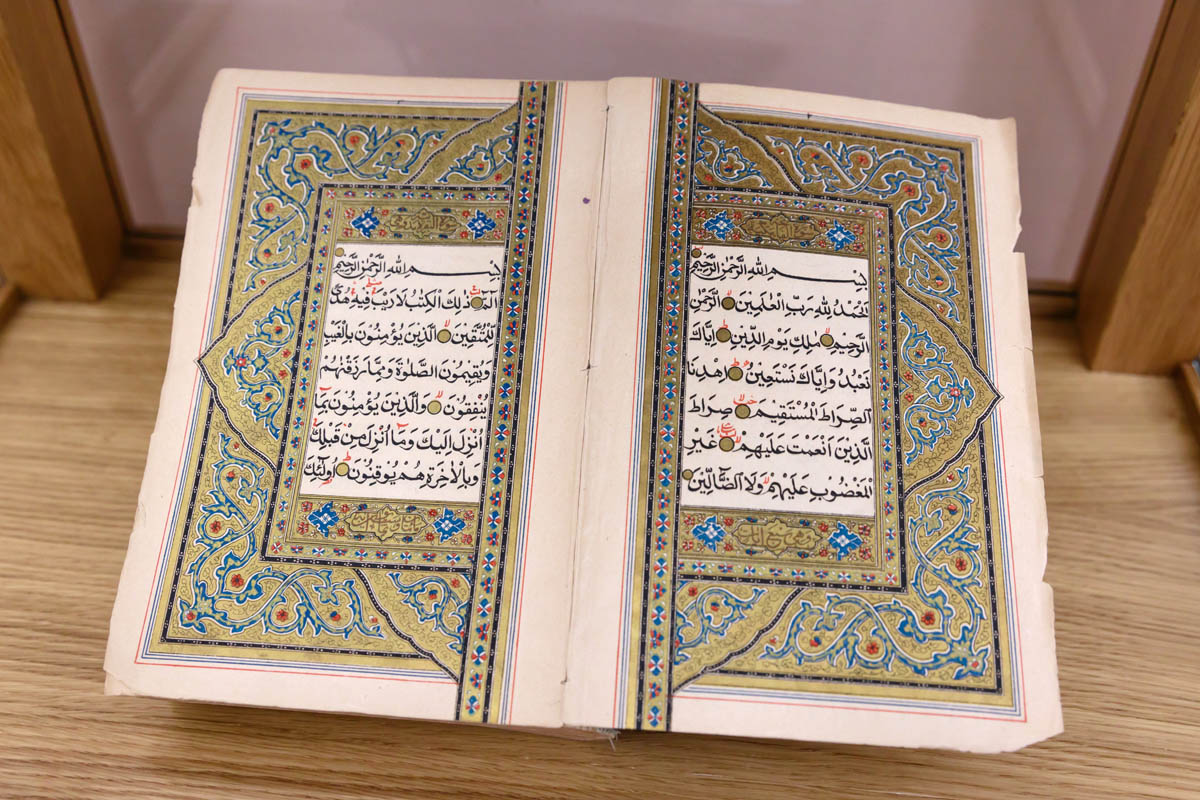 بِسْمِ اللهِ الرَّحْمٰنِ الرَّحِيمِ
اَلْحَمْدُ لِلّٰهِ رَبِّ الْعٰلَمِينَ الرَّحْمٰنِ
الرَّحِيمِ مٰلِكِ يَوْمِ الدِّينِ اِيَّاكَ
نَعْبُدُ وَاِيَّاكَ نَسْتَعِينُ اِهْدِنَا
الصِّرَاطَ الْمُسْتَقِيمَ صِرَاطَ
الَّذِينَ اَنْعَمْتَ عَلَيْهِمْ غَيْرِ
الْمَغْضُوبِ عَلَيْهِمْ وَلَا الضَّالِّينَ
بِسْمِ اللهِ الرَّحْمٰنِ الرَّحِيمِ
الٓمٓ ذٰلِكَ الْكِتٰبُ لَا رَيْبَ فِيهِ هُدًى
لِلْمُتَّقِينَ الَّذِينَ يُؤْمِنُونَ بِالْغَيْبِ
وَيُقِيمُونَ الصَّلٰوةَ وَمِمَّا رَزَقْنٰهُمْ
يُنْفِقُونَ وَالَّذِينَ يُؤْمِنُونَ بِمَا
اُنْزِلَ اِلَيْكَ وَمَا اُنْزِلَ مِنْ قَبْلِكَ
وَبِالْاٰخِرَةِ هُمْ يُوقِنُونَ اُولٰئِكَ